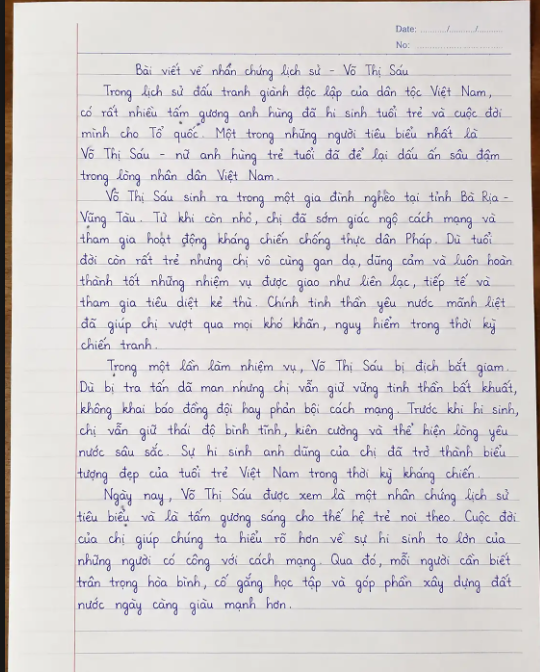 Date: ......../......../........
No: ................................
Bài viết về nhân chứng lịch sử - Võ Thị Sáu
Trong lịch sử đấu tranh giành độc lập của dân tộc Việt Nam,
có rất nhiều tấm gương anh hùng đã hi sinh tuổi trẻ và cuộc đời
mình cho Tổ quốc. Một trong những người tiêu biểu nhất là
Võ Thị Sáu - nữ anh hùng trẻ tuổi đã để lại dấu ấn sâu đậm
trong lòng nhân dân Việt Nam.
Võ Thị Sáu sinh ra trong một gia đình nghèo tại tỉnh Bà Rịa -
Vũng Tàu. Từ khi còn nhỏ, chị đã sớm giác ngộ cách mạng và
tham gia hoạt động kháng chiến chống thực dân Pháp. Dù tuổi
đời còn rất trẻ nhưng chị vô cùng gan dạ, dũng cảm và luôn hoàn
thành tốt những nhiệm vụ được giao như liên lạc, tiếp tế và
tham gia tiêu diệt kẻ thù. Chính tinh thần yêu nước mãnh liệt
đã giúp chị vượt qua mọi khó khăn, nguy hiểm trong thời kỳ
chiến tranh.
Trong một lần làm nhiệm vụ, Võ Thị Sáu bị địch bắt giam.
Dù bị tra tấn dã man nhưng chị vẫn giữ vững tinh thần bất khuất,
không khai báo đồng đội hay phản bội cách mạng. Trước khi hi sinh,
chị vẫn giữ thái độ bình tĩnh, kiên cường và thể hiện lòng yêu
nước sâu sắc. Sự hi sinh anh dũng của chị đã trở thành biểu
tượng đẹp của tuổi trẻ Việt Nam trong thời kỳ kháng chiến.
Ngày nay, Võ Thị Sáu được xem là một nhân chứng lịch sử
tiêu biểu và là tấm gương sáng cho thế hệ trẻ noi theo. Cuộc đời
của chị giúp chúng ta hiểu rõ hơn về sự hi sinh to lớn của
những người có công với cách mạng. Qua đó, mỗi người cần biết
trân trọng hòa bình, cố gắng học tập và góp phần xây dựng đất
nước ngày càng giàu mạnh hơn.